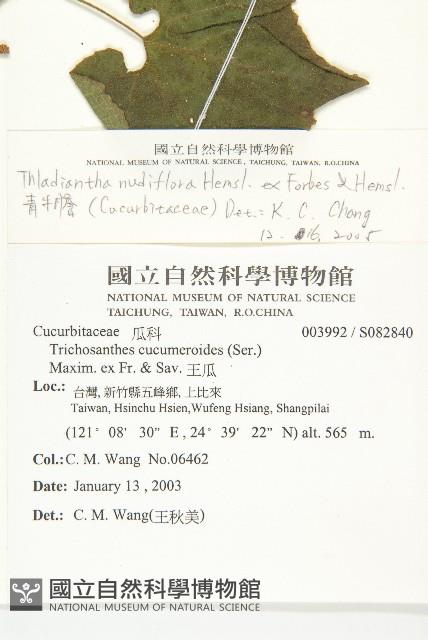 國立自然科學博物館
NATIONAL MUSEUM OF NATURAL SCIENCE, TAICHUNG, TAIWAN, R.O.CHINA
Thladiantha nudiflora Hemsl. ex Forbes & Hemsl.
青牛膽 (Cucurbitaceae) Det.: K. C. Chang
12. 16, 2005
國立自然科學博物館
NATIONAL MUSEUM OF NATURAL SCIENCE
TAICHUNG, TAIWAN, R.O.CHINA
Cucurbitaceae 瓜科 003992 / S082840
Trichosanthes cucumeroides (Ser.)
Maxim. ex Fr. & Sav. 王瓜
Loc.: 台灣, 新竹縣五峰鄉, 上比來
Taiwan, Hsinchu Hsien,Wufeng Hsiang, Shangpilai
(121° 08' 30" E , 24° 39' 22" N) alt. 565 m.
Col.: C. M. Wang No.06462
Date: January 13 , 2003
Det.: C. M. Wang(王秋美)
國立自然科學博物館
NATIONAL MUSEUM OF NATURAL SCIENCE